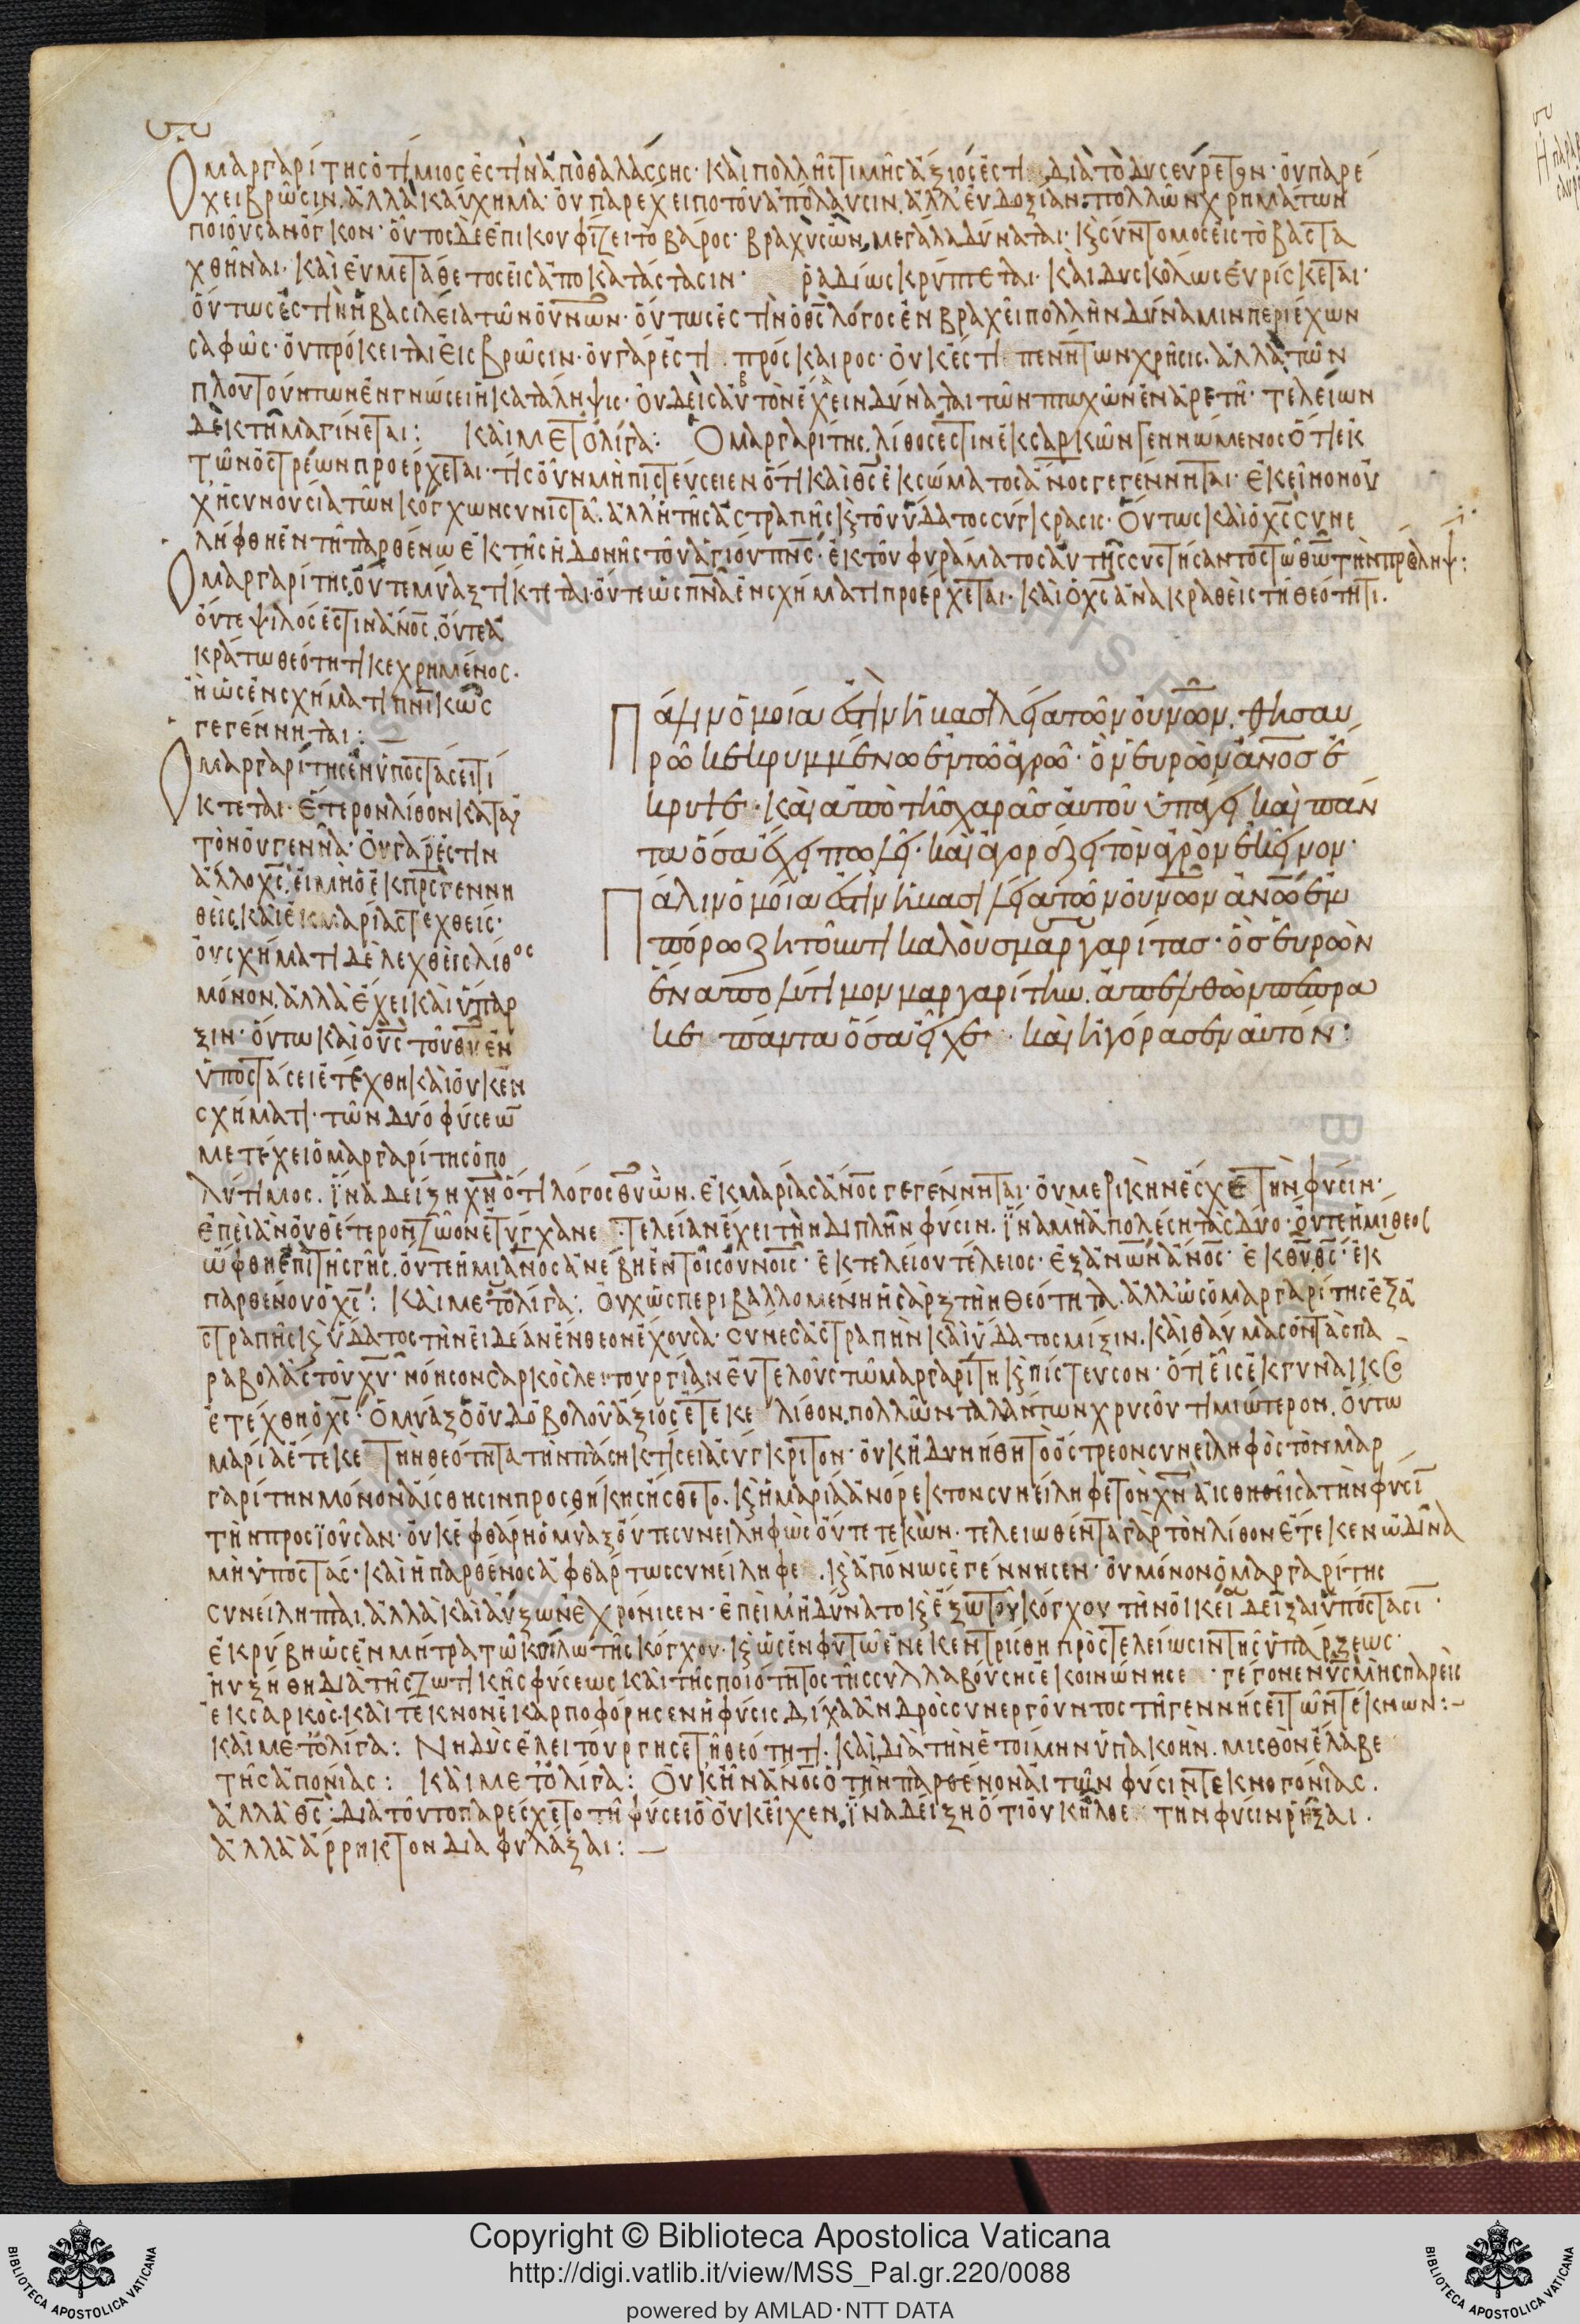 Ὁ μαργαρίτης ὁ τίμιος ἐστὶν ἀπὸ θαλάσσης· καὶ πολλῆς τιμῆς ἄξιος ἐστὶ διὰ τὸ δυσεύρετον· οὐ παρέ
χει βρῶσιν. ἀλλὰ καύχημα· οὐ παρέχει ποτοῦ ἀπόλαυσιν. ἀλλ' ἐνδοξίαν. πολλῶν χρημάτων
ποιοῦσαν ὄγκον· οὗτος δὲ ἐπικουφίζει τὸ βάρος· βραχὺς ὢν, μεγάλα δύναται· κ σύντομος εἰς τὸ βαστα
χθῆναι· καὶ εὐμετάθετος εἰς ἀποκατάστασιν· ῥαδίως κρύπτεται· καὶ δυσκόλως εὑρίσκεται·
οὕτως ἐστὶν ἡ βασιλεία τῶν οὐνων· οὕτως ἐστὶν ὁ θς λόγος ἐν βραχεῖ πολλὴν δύναμιν περιέχων
σαφῶς· οὐ πρόκειται εἰς βρῶσιν· οὐ γάρ ἐστι πρόσκαιρος· οὐκ ἔστι πενήτων χρῆσις. ἀλλὰ τῶν
πλουτούντων ἐν γνώσει ἡ κατάληψις· οὐδεὶς αὐτὸν ἔχειν δύναται τῶν πτωχῶν ἐν ἀρετῇ· τελείων
δὲ κτῆμα γίνεται: καὶ μετ' ὀλίγα: Ὁ μαργαρίτης λίθος ἐστὶν ἐκ σαρκῶν γεννώμενος ὅτι ἐκ
τῶν ὀστρέων προέρχεται· τίς οὖν μὴ πιστεύσειεν ὅτι καὶ θς ἐκ σώματος ἀνος γεγέννηται· ἐκεῖνον οὐ
χ ἡ συνουσία τῶν κόγχων συνιστᾶ. ἀλλ' ἡ τῆς ἀστραπῆς κ τοῦ ὕδατος σύγκρασις· Οὕτως καὶ ὁ χς συνε
λήφθη ἐν τῇ παρθένω ἐκτὸς ἡδονῆς τοῦ ἁγίου πνς· ἐκ τοῦ φυράματος αὐτῆς συστήσαντος
Ὁ μαργαρίτης οὔτε μύαξ τίκτεται· οὔτε ὡς πνα ἐν σχήματι προέρχεται· καὶ ὁ χς ἀνακραθεὶς τῇ θεότητι.
οὔτε ψιλός ἐστιν ἀνος. οὔτε ἀ
κράτω θεότητι κεχρημένος·
ἢ ὡς ἐν σχήματι πνικῶς
γεγέννηται: —
Ὁ μαργαρίτης ἐν ὑποστάσει τί
κτεται· ἕτερον λίθον κατ' αυ
τὸν οὐ γεννᾶ· οὐ γάρ ἐστιν
ἄλλος χς, εἰ μὴ ὁ ἐκ πρς γεννη
θεὶς, καὶ ἐκ μαρίας τεχθείς·
οὐ σχήματι δὲ λεχθεὶς λίθος
μόνον. ἀλλὰ ἔχει καὶ ὕπαρ
ξιν· οὕτω καὶ ὁ υς τοῦ θυ ἐν
ὑποστάσει ἐτέχθη καὶ οὐκ ἐν
σχήματι· τῶν δύο φύσεω
μετέχει ὁ μαργαρίτης ὁ πο
λύτιμος. ἵνα δείξη χν ὅτι λόγος θυ ὢν. ἐκ μαρίας ἀνος γεγέννηται· οὐ μερικὴν ἔσχε τὴν φύσιν·
ἐπεὶ ἂν οὐθέτερον ζῶον ἐτύγχανε· τελείαν ἔχει τὴν διπλῆν φύσιν. ἵνα μὴ ἀπολέση τὰς δύο· οὔτε ἡμίθεος
ὤφθη ἐπὶ τῆς γῆς. οὔτε ἡμιανος ἀνέβη ἐν τοῖς οὐνοις· ἐκ τελείου τέλειος· ἐξ ἀνων ἀνος· ἐκ θυ θς· ἐκ
παρθένου ὁ χς: καὶ μετ' ὀλίγα: Οὐχ ὡς περιβαλλομένη ἡ σὰρξ τὴν θεότητα. ἀλλ' ὡς ὁ μαργαρίτης ἐξ ἀ
στραπῆς κ ὕδατος τὴν εἰδέαν ἔνθεον ἔχουσα· σύνες ἀστραπὴν καὶ ὕδατος μίξιν. καὶ θαύμασον τὰς πα
ραβολὰς τοῦ χυ· νόησον σαρκὸς λειτουργίαν εὐτελοῦς τῶ μαργαρίτη κ πίστευσον· ὅτι εἷς ἐκ γυναικὸ
ἐτέχθη ὁ χς· ὁ μύαξ ὁ οὐδ' ὀβολοῦ ἄξιος ἔτεκε λίθον πολλῶν ταλάντων χρυσοῦ τιμιώτερον. οὕτω
μαρία ἔτεκε τὴν θεότητα τὴν πάση κτίσει ἀσύγκριτον· οὐκ ἠδυνήθη τὸ ὄστρεον συνειληφὸς τὸν μαρ
γαρίτην μόνον αἴσθησιν προσθήκης ἤσθετο. κ ἡ μαρία ἀνόρεκτον συνείληφε τὸν χν αἰσθηθεῖσα τὴν φύσι
τὴν προσϊοῦσαν· οὐκ ἐφθάρη ὁ μύαξ οὔτε συνειληφὼς οὔτε τεκὼν· τελειωθέντα γὰρ τὸν λίθον ἔτεκεν ὠδῖνα
μὴ ὑποστάς· καὶ ἡ παρθένος ἀφθάρτως συνείληφε. κ ἀπόνως ἐγέννησεν· οὐ μόνον ὁ μαργαρίτης
συνείληπται. ἀλλὰ καὶ αὔξων ἐχρόνισεν· ἐπεὶ μὴ δύνατο κ ἔξω τοῦ κόγχου τὴν οἰκεία δεῖξαι ὑπόστασι·
ἐκρύβη ὡς ἐν μήτρα τῶ κοίλω τῆς κόγχου· κ ὡς ἐν φυτῶ ἐνεκεντρίσθη πρὸς τελείωσιν τῆς ὑπάρξεως·
ηὐξήθη διὰ τῆς ζωτικῆς φύσεως καὶ τῆς ποιότητος τῆς συλλαβούσης ἐκοινώνησε·
ἐκ σαρκὸς. καὶ τέκνον ἐκαρποφόρησεν ἡ φύσις δίχα ἀνδρὸς συνεργοῦντος τῇ γεννήσει τῶν τέκνων:—
καὶ μετ' ὀλίγα: Νηδὺς ἐλειτούργησε τῇ θεότητι. καὶ διὰ τὴν ἑτοίμην ὑπακοὴν. μισθὸν ἔλαβε
τῆς ἀπονίας: καὶ μετ' ὀλίγα: Οὐκ ἦν ἀνος ὁ τὴν παρθένον αἰτῶν φύσιν τεκνογονίας.
ἀλλὰ θς: διὰ τοῦτο παρέσχετο τῇ φύσει ὃ οὐκ εἶχεν. ἵνα δείξη ὅτι οὐκ ἦλθε τὴν φύσιν ῥῆξαι.
ἀλλὰ ἄρρηκτον διαφυλάξαι: —
Πάλιν ὁμοία ἐστὶν ἡ βασιλεία τῶν οὐνων. θησαυ
ρῶ κεκρυμμένω ἐν τῶ ἀγρῶ· ὃν εὑρὼν ἀνος ἔ
κρυψε· καὶ ἀπὸ τῆς χαρᾶς αὐτοῦ ὑπάγει καὶ πάν
τα ὅσα ἔχει πωλεῖ· καὶ ἀγοράζει τὸν ἀγρὸν ἐκεῖνον·
Πάλιν ὁμοία ἐστὶν ἡ βασιλεία τῶν οὐνων ἀνω ἐμ
πόρω ζητοῦντι καλοὺς μαργαρίτας· ὃς εὑρὼν
ἕνα πολύτιμον μαργαρίτην. ἀπελθὼν πέπρα
κε πάντα ὅσα εἶχε· καὶ ἠγόρασεν αὐτόν:
Copyright © Biblioteca Apostolica Vaticana
http://digi.vatlib.it/view/MSS_Pal.gr.220/0088
powered by AMLAD·NTT DATA
BIBLIOTECA APOSTOLICA VATICANA
BIBLIOTECA APOSTOLICA VATICANA